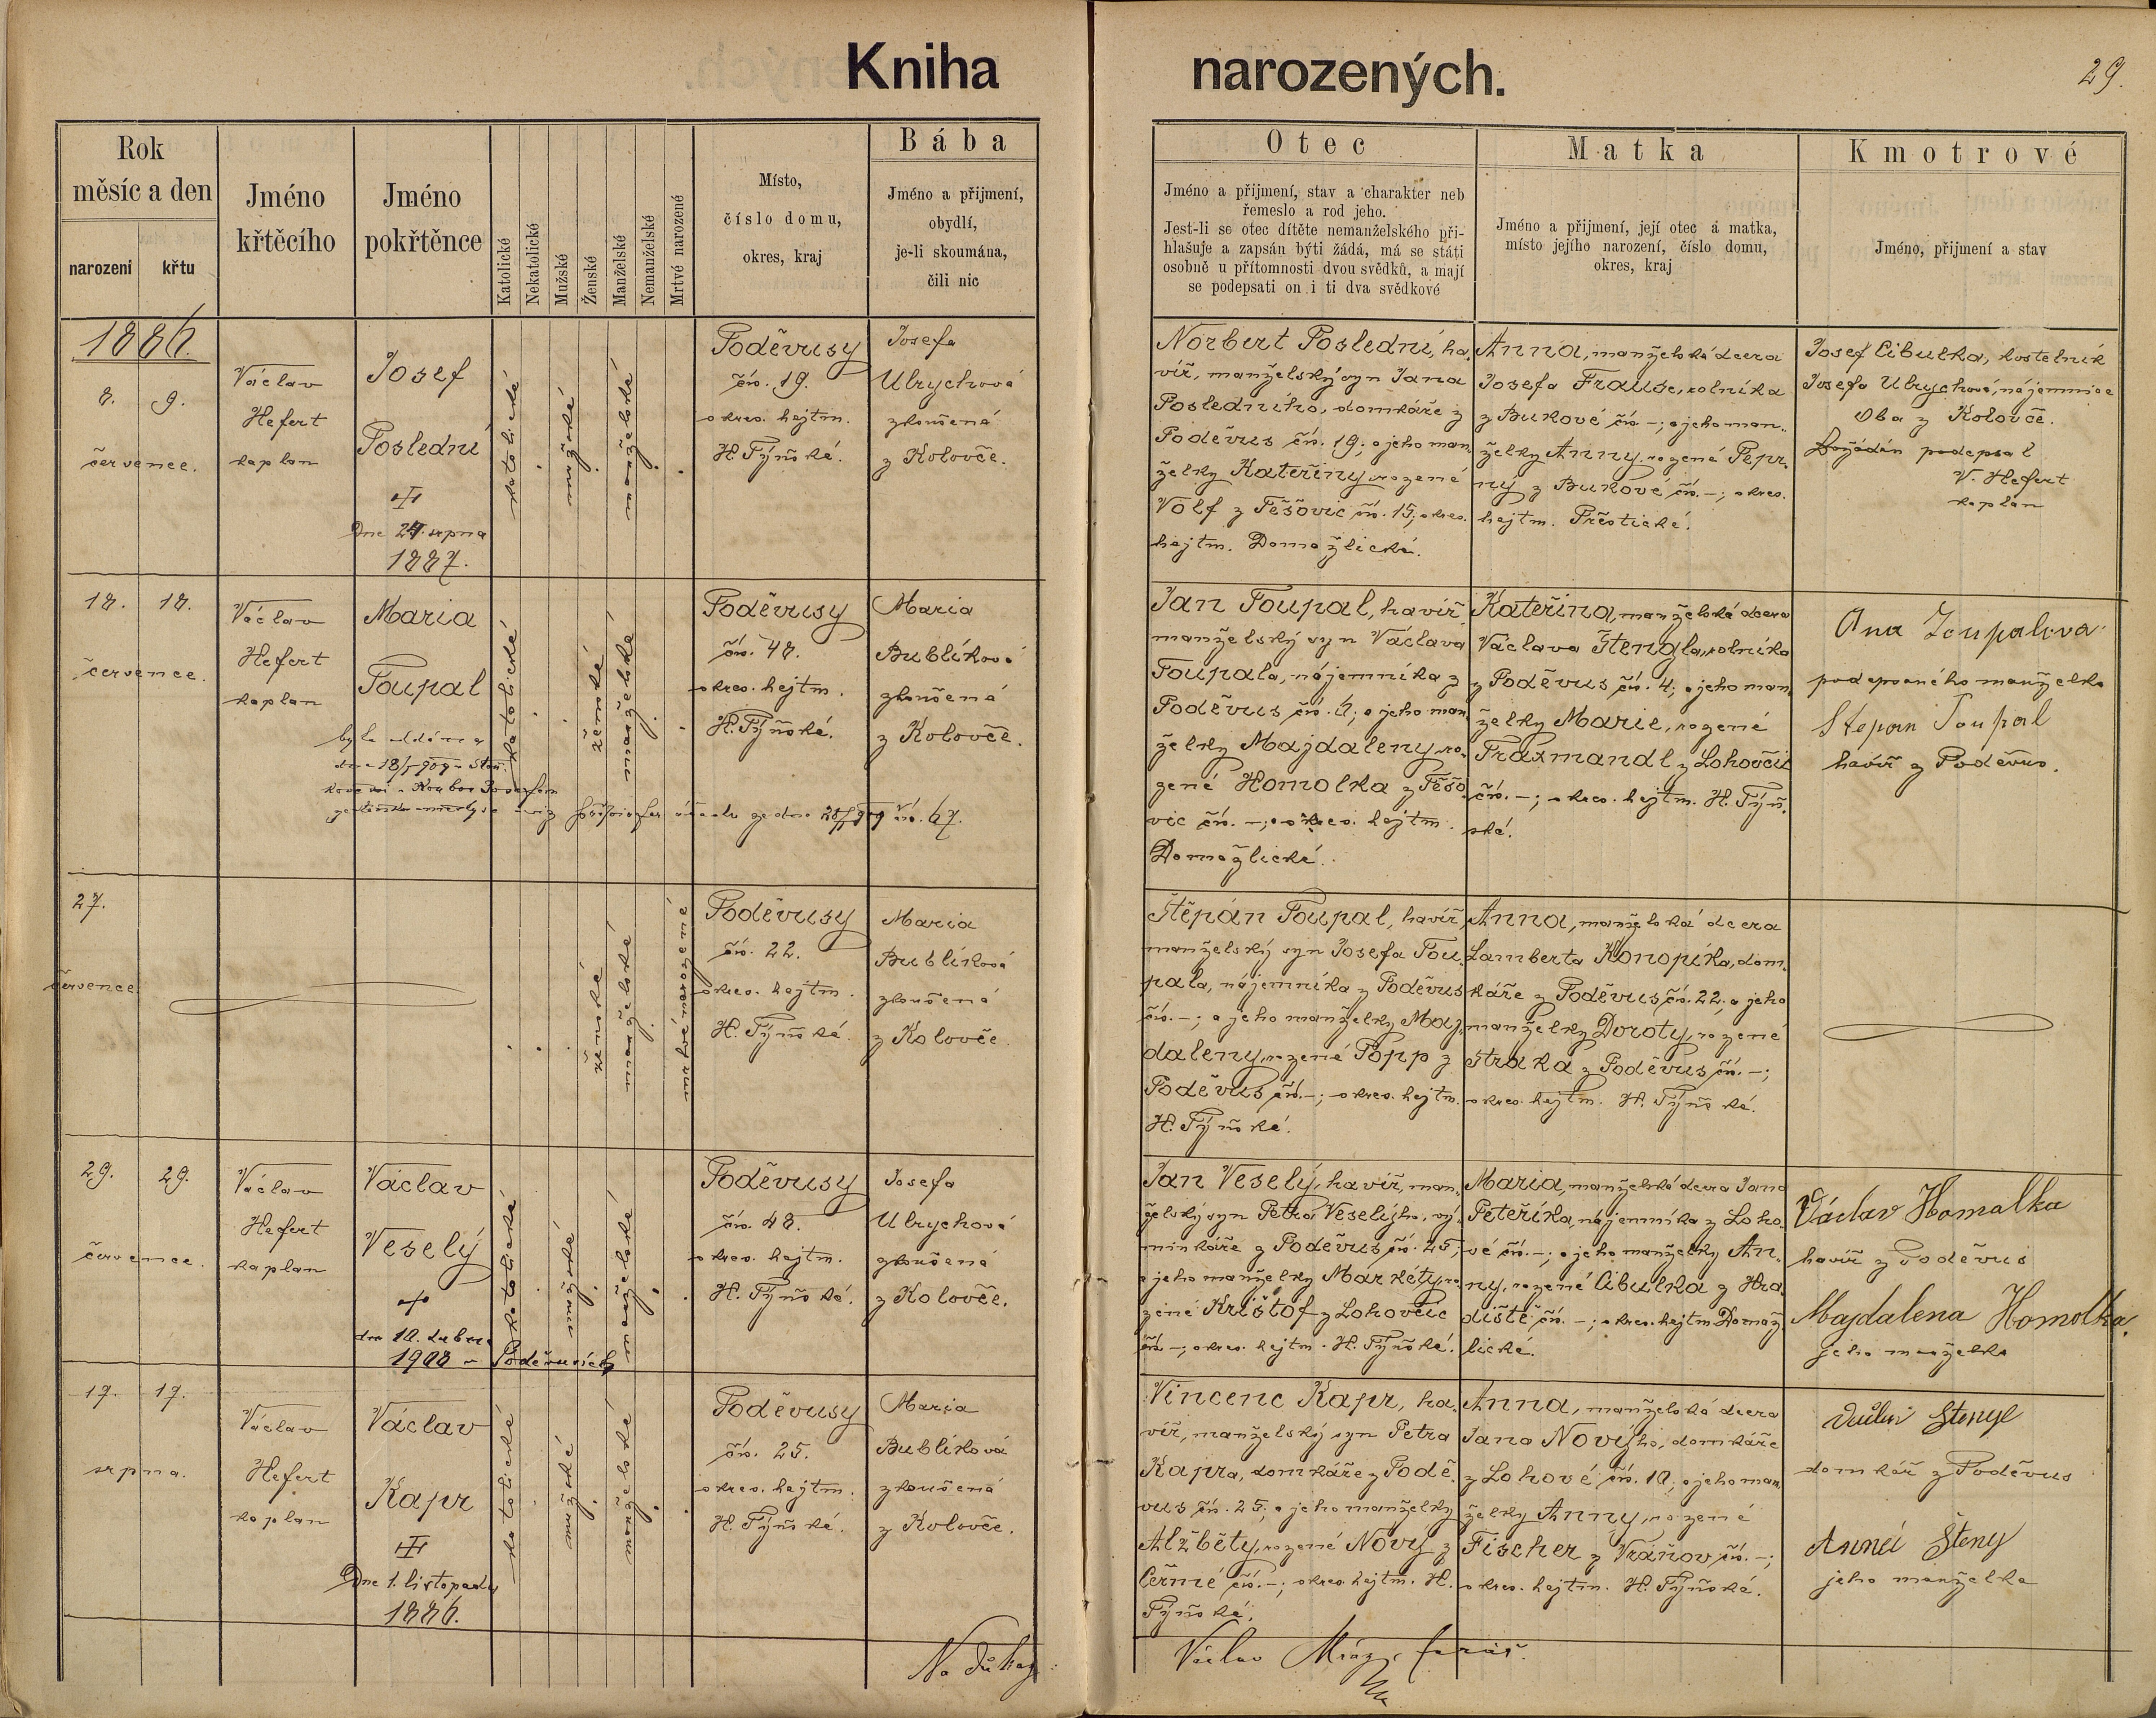 Kniha narozených.
29.
Rok
měsíc a den
narození
křtu
Jméno
křtěcího
Jméno
pokřtěnce
Katolické
Nekatolické
Mužské
Ženské
Manželské
Nemanželské
Mrtvé narozené
Místo,
číslo domu,
okres, kraj
Bába
Jméno a přijmení,
obydlí,
je-li skoumána,
čili nic
Otec
Jméno a přijmení, stav a charakter neb
řemeslo a rod jeho.
Jest-li se otec dítěte nemanželského při-
hlašuje a zapsán býti žádá, má se státi
osobně u přítomnosti dvou svědků, a mají
se podepsati on i ti dva svědkové
Matka
Jméno a přijmení, její otec a matka,
místo jejího narození, číslo domu,
okres, kraj
Kmotrové
Jméno, přijmení a stav
1886.
8. 9.
července.
Václav
Hefert
kaplan
Josef
Poslední
Dne 24. srpna
1887.
katolické
mužské
manželské
Poděvusy
čís. 19.
okres. hejtm.
H. Týnské.
Josefa
Ulrychová
zkoušená
z Koloveče.
Norbert Poslední, ha-
víř, manželský syn Jana
Posledního, domkáře z
Poděvus čís. 19; a jeho man-
želky Kateřiny, rozené
Volf z Těšovic čís. 15; okres.
hejtm. Domažlické.
Anna, manželská dcera
Josefa Frause, rolníka
z Bukové čís. -; a jeho man-
želky Anny, rozené Pepr-
ný z Bukové čís. -; okres.
hejtm. Přestické.
Josef Cibulka, kostelník
Josefa Ulrychová, nájemnice
Oba z Koloveče.
Dožádán podepsal
V. Hefert
kaplan
18. 18.
července.
Václav
Hefert
kaplan
Maria
Toupal
byla oddána
dne 18/5 909
28/5 909 čís. 67.
katolické
ženské
manželské
Poděvusy
čís. 48.
okres. hejtm.
H. Týnské.
Maria
Bublíková
zkoušená
z Koloveče.
Jan Toupal, havíř,
manželský syn Václava
Toupala, nájemníka z
Poděvus čís. 6; a jeho man-
želky Majdaleny, ro-
zené Homolka z Těšo-
vic čís. -; okres. hejtm.
Domažlické.
Kateřina, manželská dcera
Václava Štengla, rolníka
z Poděvus čís. 4; a jeho man-
želky Marie, rozené
Traxmandl z Lohovčic
čís. -; okres. hejtm. H. Týn-
ské.
Ana Toupalova
podepsaného manželka
Štepan Toupal
havíř z Poděvus.
27.
července.
ženské
manželské
mrtvé narozené
Poděvusy
čís. 22.
okres. hejtm.
H. Týnské.
Maria
Bublíková
zkoušená
z Koloveče.
Štěpán Toupal, havíř,
manželský syn Josefa Tou-
pala, nájemníka z Poděvus
čís. -; a jeho manželky Maj-
daleny, rozené Popp z
Poděvus čís. -; okres. hejtm.
H. Týnské.
Anna, manželská dcera
Lamberta Konopíka, dom-
káře z Poděvus čís. 22; a jeho
manželky Doroty, rozené
Straka z Poděvus čís. -;
okres. hejtm. H. Týnské.
29. 29.
července.
Václav
Hefert
kaplan
Václav
Veselý
dne 10. dubna
1908 v Poděvusích
katolické
mužské
manželské
Poděvusy
čís. 48.
okres. hejtm.
H. Týnské.
Josefa
Ulrychová
zkoušená
z Koloveče.
Jan Veselý, havíř, man-
želský syn Petra Veselýho, vý-
minkáře z Poděvus čís. 25;
a jeho manželky Markéty, ro-
zené Krištof z Lohovčic
čís. -; okres. hejtm. H. Týnské.
Maria, manželská dcera Jana
Peteříka, nájemníka z Loho-
vé čís. -; a jeho manželky An-
ny, rozené Cibulka z Hra-
diště čís. -; okres. hejtm Domaž-
lické.
Václav Homalka
havíř z Poděvus
Majdalena Homolka.
jeho manželka
17. 17.
srpna.
Václav
Hefert
kaplan
Václav
Kapr
Dne 1. listopadu
1886.
katolické
mužské
manželské
Poděvusy
čís. 25.
okres. hejtm.
H. Týnské.
Maria
Bublíková
zkoušená
z Koloveče.
Vincenc Kapr, ha-
víř, manželský syn Petra
Kapra, domkáře z Podě-
vus čís. 25; a jeho manželky
Alžběty, rozené Nový z
Čermé čís. -; okres. hejtm. H.
Týnské.
Anna, manželská dcera
Jana Novýho, domkáře
z Lohové čís. 10; a jeho man-
želky Anny, rozené
Fischer z Vráňov čís. -;
okres. hejtm. H. Týnské.
Stengl
domkář z Poděvus
Anná Šteny
jeho manželka
Na důkaz
Václav Mráz, farář.